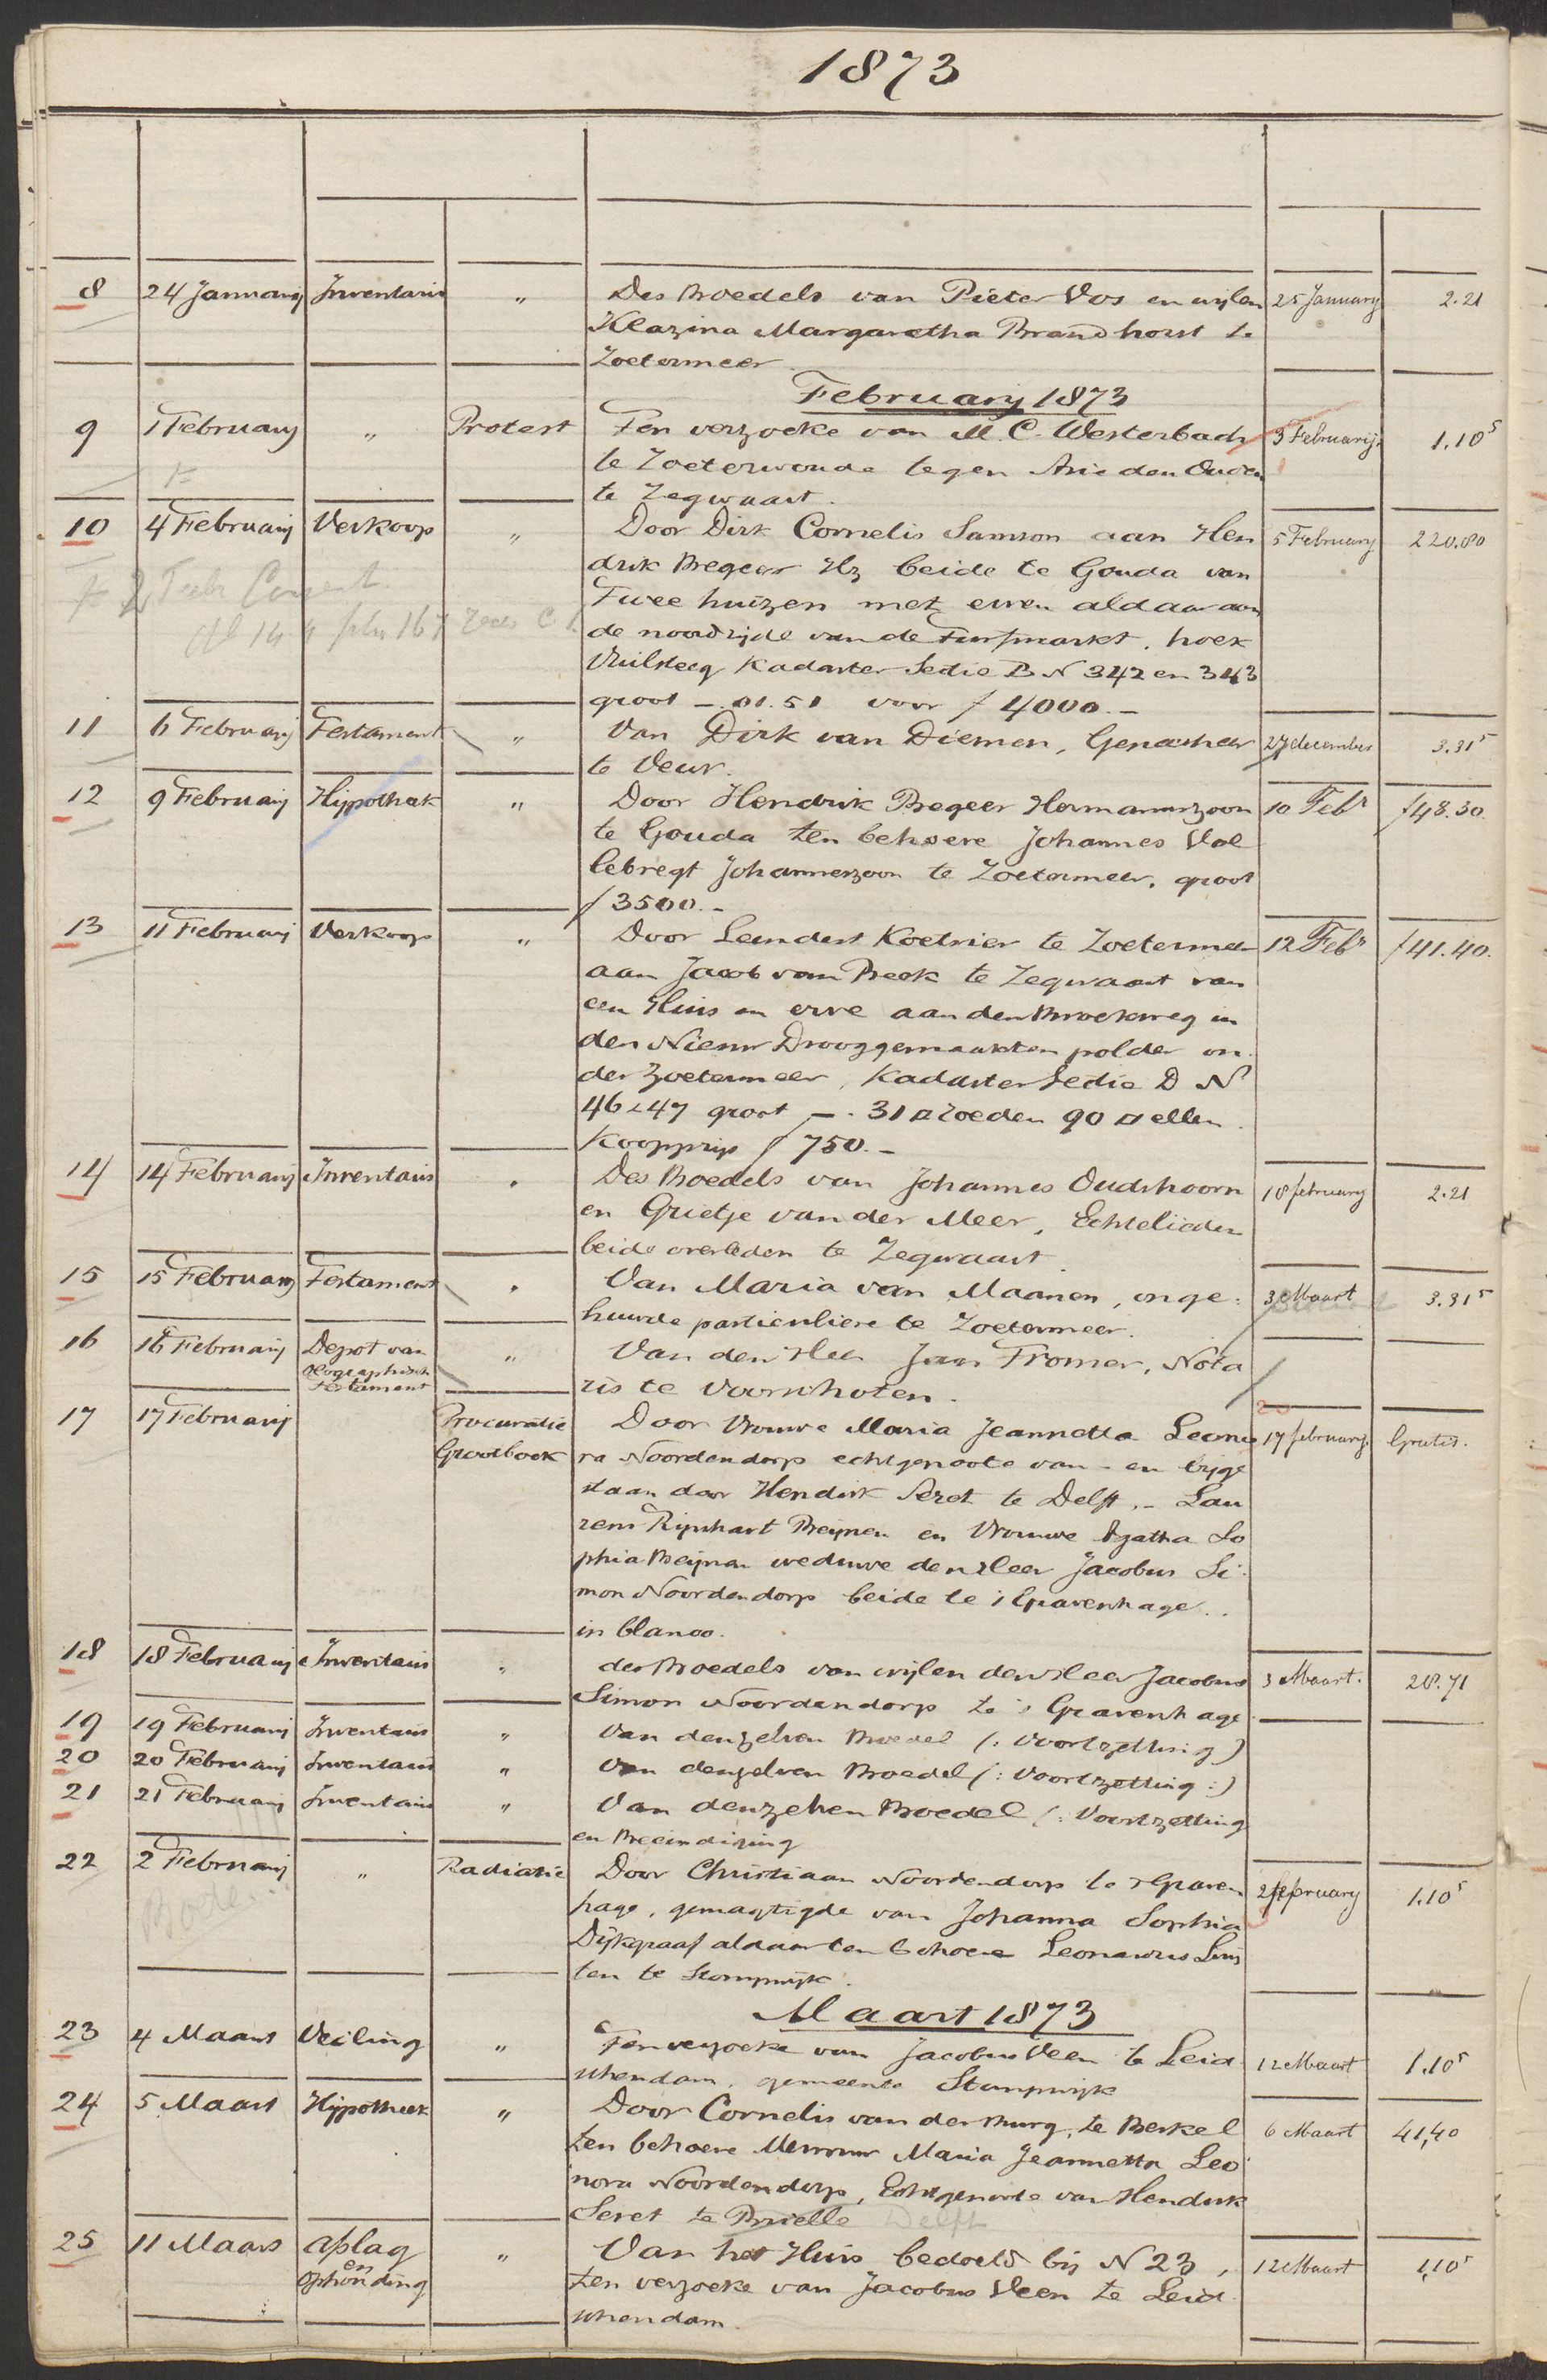 1873
8 24 January Inventaris " Des Boedels van Pieter Vos en wijlen 25 January 2.21
Klazina Margaretha Brandhorst te
Zoetermeer.
February 1873
9 1 February " Protest Ten verzoeke van M. C. Westerbach 3 February 1.10⁵
te Zoeterwoude tegen Arie den Ouden
te Zegwaart.
10 4 February Verkoop " Door Dirk Cornelis Samson aan Hen 5 February 220.80
drik Bregeer Hz beide te Gouda van
Twee huizen met erven aldaar aan
de noordzijde van de Turfmarkt, hoek
Vuilsteeg Kadaster Sectie B N 342 en 343
groot -.01.51 voor ƒ 4000.-
11 6 February Testament " Van Dirk van Diemen, Geneesheer 27 december 3.31⁵
te Veur.
12 9 February Hypotheek " Door Hendrik Bregeer Hermanuszoon 10 Febr ƒ48.30.
te Gouda ten behoeve Johannes Vol
lebregt Johanneszoon te Zoetermeer, groot
ƒ 3500.-
13 11 February Verkoop " Door Leendert Koetsier te Zoetermeer 12 Febr ƒ41.40.
aan Jacob van Beek te Zegwaart van
een Huis en erve aan den Broekweg in
den Nieuw Drooggemaakten polder on
der Zoetermeer, Kadaster Sectie D N
46 & 47 groot -. 31 □ roeden 90 □ ellen.
Koopprijs ƒ 750.-
14 14 February Inventaris " Des Boedels van Johannes Oudshoorn 18 february 2.21
en Grietje van der Meer, Echtelieden
beide overleden te Zegwaart.
15 15 February Testament " Van Maria van Maanen, onge: 3 Maart 3.31⁵
huwde particuliere te Zoetermeer.
16 16 February Depot van " Van den Heer Jan Tromer, Nota
Olographisch
testament ris te Voorschoten.
17 17 February Procuratie Door Vrouwe Maria Jeannetta Leono 17 february. Gratis.
Grootboek ra Noordendorp echtgenoote van - en byge
staan door Hendrik Seret te Delft, - Lau
rens Rijnhart Beijnen en Vrouwe Agatha So
phia Beijnen weduwe den Heer Jacobus Si
mon Noordendorp beide te 's Gravenhage.
in blanco.
18 18 February Inventaris " des Boedels van wijlen den Heer Jacobus 3 Maart. 28.71
Simon Noordendorp te 's Gravenhage
19 19 February Inventaris " Van denzelven Boedel (: Voortzetting)
20 20 February Inventaris " Van denzelven Boedel (: Voortzetting :)
21 21 February Inventaris " Van denzelven Boedel (: Voortzetting
en Beeindiging
22 2 February " Radiatie Door Christiaan Noordendorp te 's Graven february 1.10⁵
hage, gemagtigde van Johanna Sophia
Dijkgraaf aldaar ten behoeve Leonardus Luij
ten te Stompwijk.
Maart 1873
23 4 Maart Veiling " Ten verzoeke van Jacobus Veen te Leid 12 Maart 1.10⁵
schendam, gemeente Stompwijk
24 5 Maart Hypotheek " Door Cornelis van der Burg, te Berkel 6 Maart 41,40
ten behoeve Mevrouw Maria Jeannetta Leo
nora Noordendorp, Echtgenoote van Hendrik
Seret te Brielle Delft
25 11 Maart Afslag " Van het Huis bedoeld bij N 23, 12 Maart 1,10⁵
en
Ophouding ten verzoeke van Jacobus Veen te Leid
schendam.